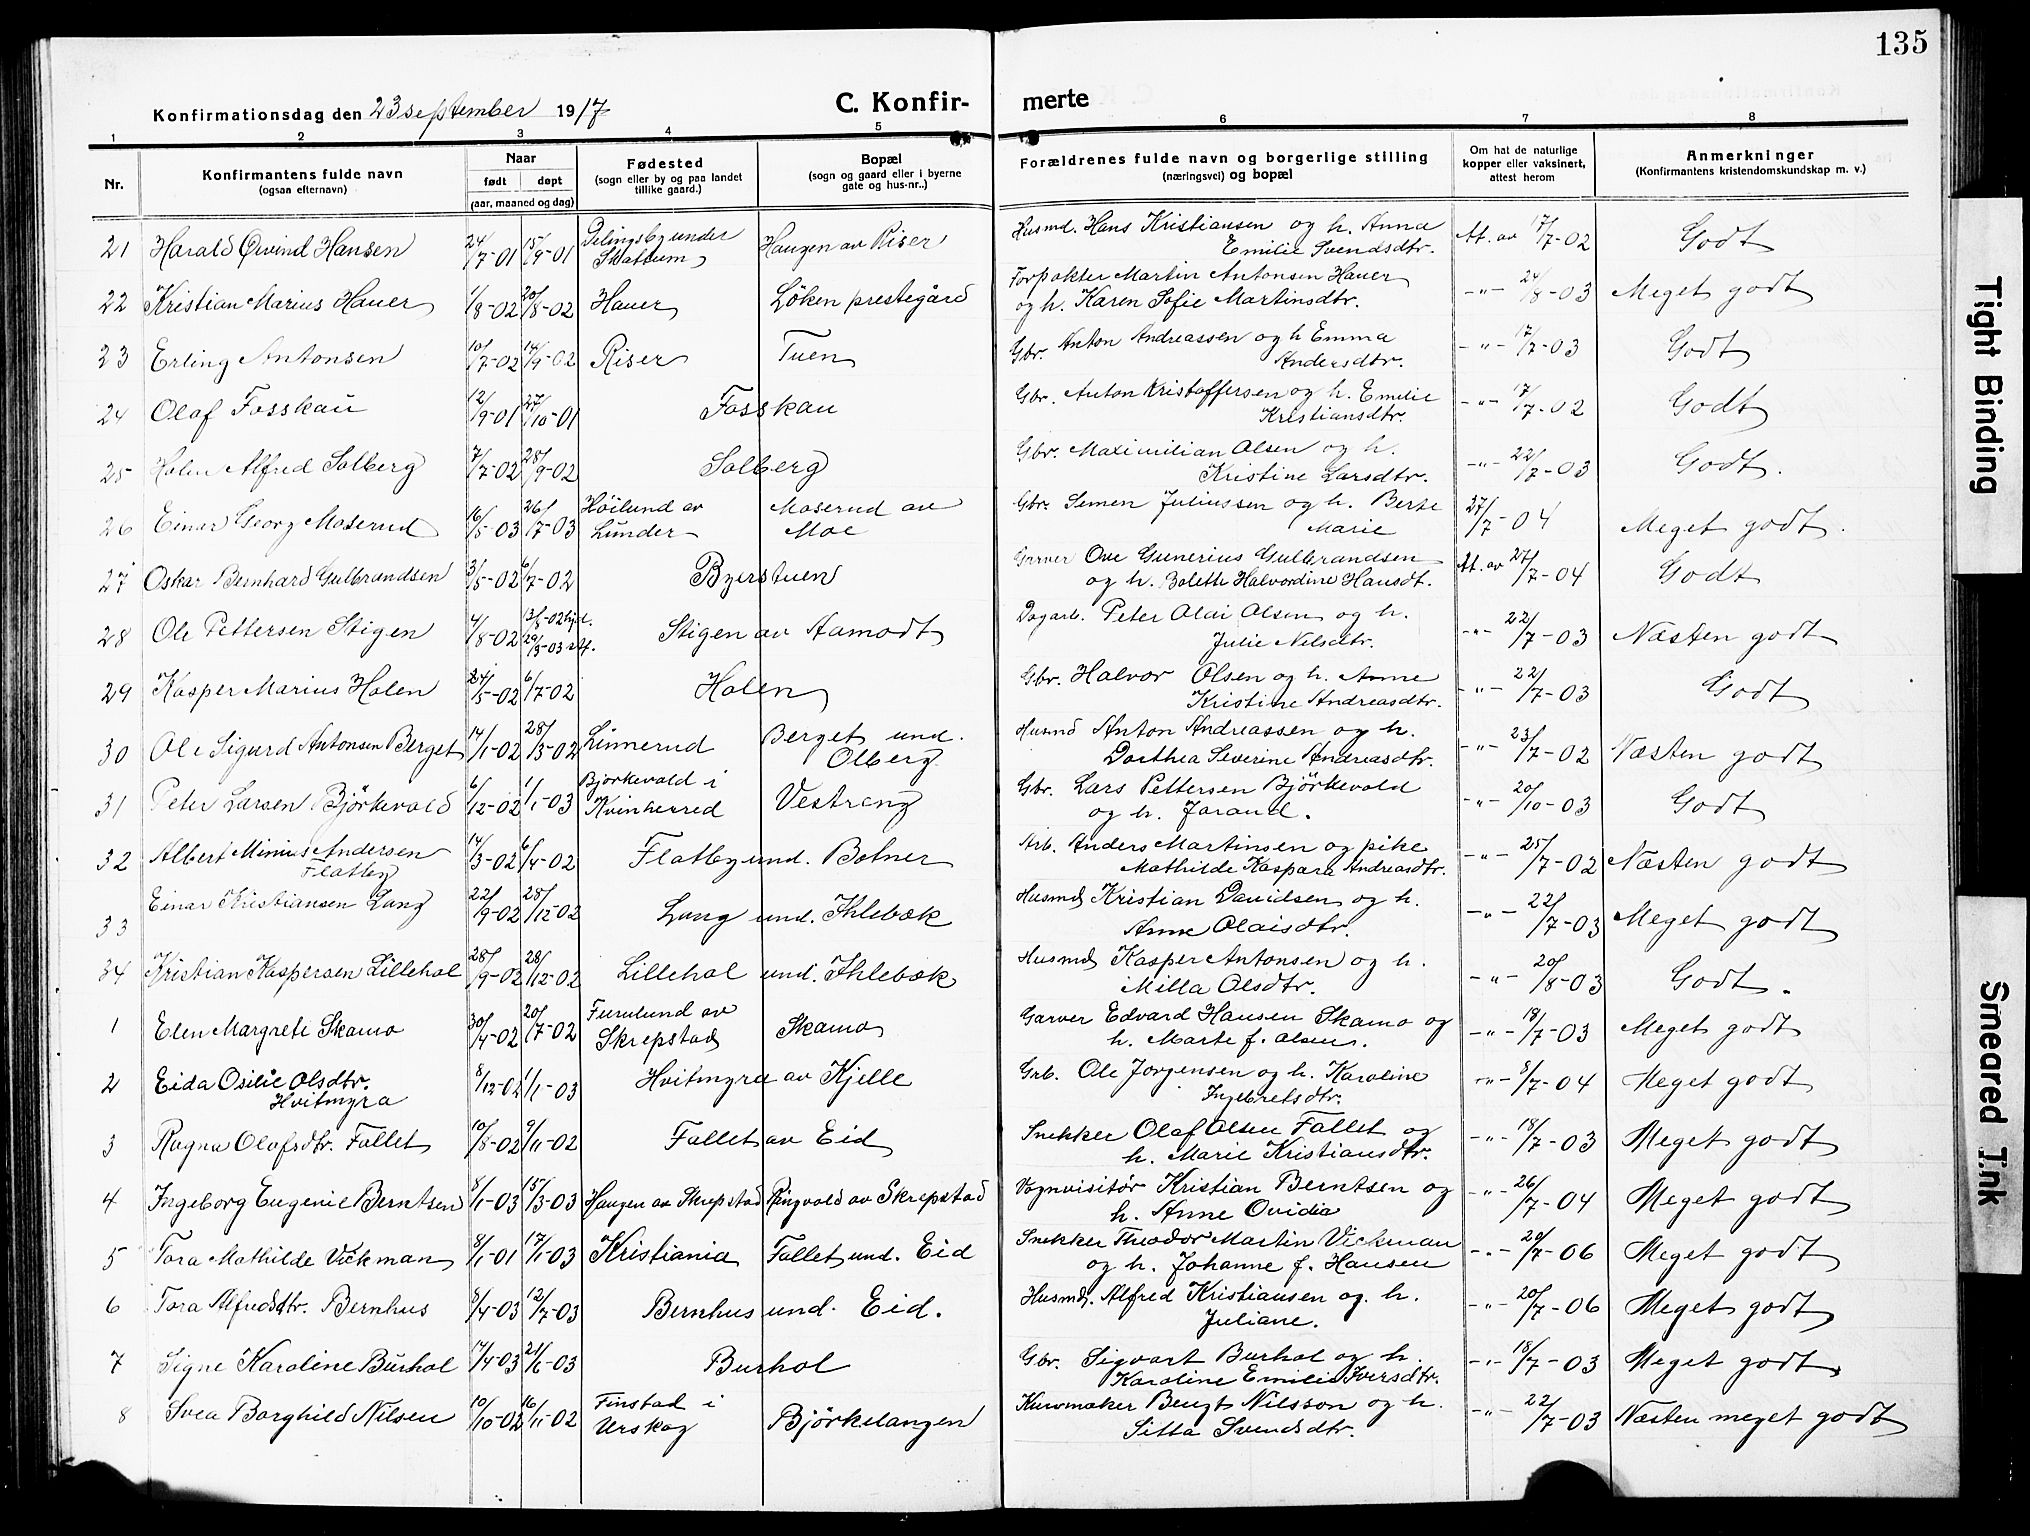 135
Konfirmationsdag den 23 september 1917
C. Konfir-
merte
1 2 3 4 5 6 7 8
Nr.
Konfirmantens fulde navn
(ogsaa efternavn)
Naar
født døpt
(aar, maaned og dag)
Fødested
(sogn eller by og paa landet
tillike gaard.)
Bopæl
(sogn og gaard eller i byerne
gate og hus-nr..)
Forældrenes fulde navn og borgerlige stilling
(næringsvei) og bopæl
Om hat de naturlige
kopper eller vaksinert,
attest herom
Anmerkninger
(Konfirmantens kristendomskundskap m. v.)
21 Harald Øivind Hansen 24/7-01 15/9-01 under Haugen av Riser Husmd. Hans Kristiansen og h. Anna At. av 17/7-02 Godt
Skattum Emilie Svendsdtr.
22 Kristian Marius Hauer 1/8-02 20/8-02 Hauer Löken prestegård Forpakter Martin Antonsen Hauer -"- 24/8-03 Meget godt
og h. Karen Sofie Martinsdtr.
23 Erling Antonsen 10/7-02 14/9-02 Riser Tuen Gbr. Anton Andreassen og h Emma -"- 17/7-03 Godt
Andersdtr.
24 Olaf Fosskau 12/9-01 27/10-01 Fosskau Gbr. Anton Kristoffersen og h. Emilie -"- 17/7-02 Godt
Kristiansdtr.
25 Holm Alfred Solberg 7/7-02 28/9-02 Solberg Gbr. Maximilian Olsen og h. -"- 22/7-03 Godt.
Kristine Larsdtr.
26 Einar Georg Moserud 16/5-03 26/7-03 Höilund av Moserud av Gbr. Semen Juliussen og h. Berte 27/7-04 Meget godt.
Lunder Moe Marie
27 Oskar Bernhard Gulbrandsen 3/5-02 6/7-02 Byerstuen Garver Ove Gunerius Gulbrandsen At. av 27/7-04 Godt
og h. Bolette Halvordine Hansdt.
28 Ole Pettersen Stigen 4/8-02 13/8-02 hjd. Stigen av Aamodt Dagarb. Peter Olai Olsen og h. -"- 22/7-03 Næsten godt
29/3-03 stf. Julie Nilsdtr.
29 Kasper Marius Holen 24/5-02 6/7-02 Holen Gbr. Halvor Olsen og h. Anne -"- 22/7-03 Godt
Kristine Andreasdtr.
30 Ole Sigurd Antonsen Berget 14/1-02 28/3-02 Linnerud Berget und. Husmd Anton Andreassen og h. -"- 23/7-02 Næsten godt
Olberg Dorthea Severine Andreasdtr.
31 Peter Larsen Björkevold 6/12-02 1/1-03 Bjorkevold i Vestreng Gbr. Lars Pettersen Björkevold -"- 20/10-03 Godt
Kvinherred og h. Jorand.
32 Albert Minius Andersen 14/3-02 6/4-02 Flatby und. Botner Arb. Anders Martinsen og pike -"- 25/7-02 Næsten godt
Flatby Mathilde Kaspara Andreasdtr.
33 Einar Kristiansen Lang 22/9-02 28/12-02 Lang und. Ihlebæk Husmd Kristian Davidsen og h. -"- 22/7-03 Meget godt
Anne Olaisdtr.
34 Kristian Kaspersen Lillehol 28/9-02 28/12-02 Lillehol und. Ihlebæk Husmd Kasper Antonsen og h. -"- 20/8-03 Godt.
Milla Olsdtr.
1 Elen Margrete Skamo 30/4-02 20/7-02 Furulund av Skamo Garver Edvard Hansen Skamo og -"- 18/7-03 Meget godt
Skrepstad h. Marte f. Olsen.
2 Eida Osilie Olsdtr. 8/12-02 1/1-03 Hvitmyra av Kjelle Grb. Ole Jorgensen og h. Karoline -"- 8/7-04 Meget godt
Hvitmyra Ingebretsdtr.
3 Ragna Olafsdtr. Fallet 10/8-02 9/11-02 Fallet av Eid Snekker Olaf Olsen Fallet og -"- 18/7-03 Meget godt
h. Marie Kristiansdtr.
4 Ingeborg Eugenie Berntsen 8/1-03 15/3-03 Haugen av Skrepstad Ringvold av Skrepstad Vognvisitör Kristian Berntsen og -"- 26/7-04 Meget godt
h. Anne Ovidia
5 Tora Mathilde Vickman 8/1-01 17/1-03 Kristiania Fallet und. Eid Snekker Theodor Martin Vickman -"- 20/7-06 Meget godt
og h. Johanne f. Hansen
6 Tora Alfredsdtr. Bernhus 8/4-03 12/7-03 Bernhus und. Eid. Husmd. Alfred Kristiansen og. h. -"- 20/7-06 Meget godt
Juliane.
7 Signe Karoline Burhol 17/4-03 21/6-03 Burhol Gbr. Sigvart Burhol og h. -"- 18/7-03 Meget godt
Karoline Emilie Iversdtr.
8 Svea Borghild Nilsen 10/10-02 16/11-02 Finstad i Björkelangen Kurvmaker Bengt Nilsson og h. -"- 22/7-03 Næsten meget godt
Urskog Sitta Svendsdtr.
Tight Binding
Smeared Ink